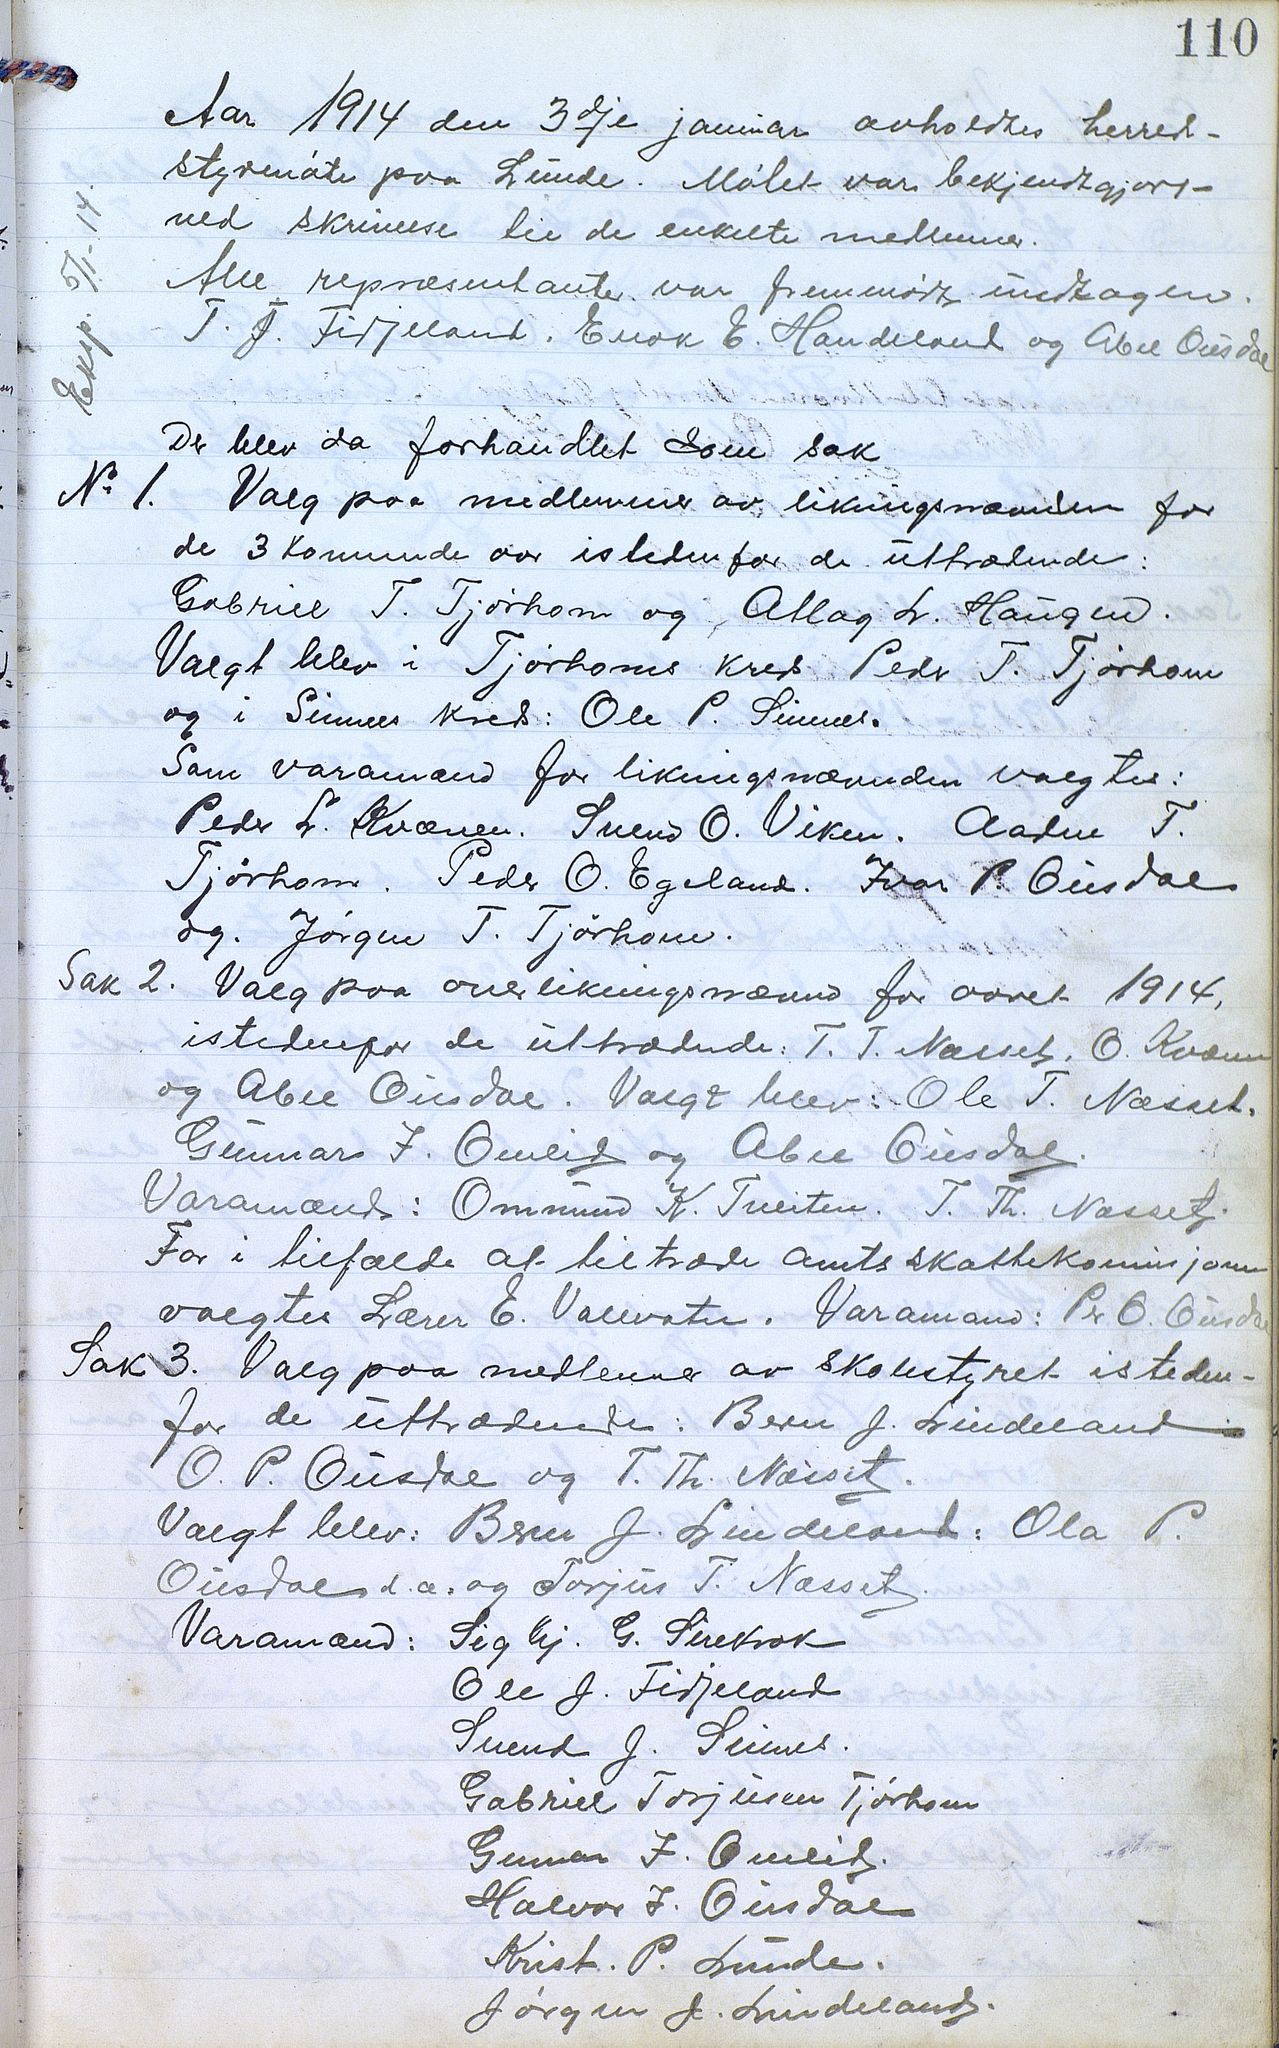 110
Aar 1914 den 3dje januar avholdtes herred-
styremøte paa Lunde. Møtet var bekjendtgjort
ved skrivelse til de enkelte medlemmer.
Alle repræsentanter var fremmødt undtagen.
T. J. Fidjeland. Enok E. Handeland og Abel Ousdal
Eksp. 5/1-14.
Der blev da forhandlet som sak
No 1. Valg paa medlemmer av likningsnævnden for
de 3 kommende aar istedenfor de uttrædende:
Gabriel T. Tjørhom og Atlag L. Haugen.
Valgt blev i Tjørhoms kreds Peder T. Tjørhom
og i Sinnes kreds: Ole P. Sinnes.
Som varamænd for likningsnævnden valgtes:
Peder L. Kvæven. Svend O. Viken. Aadne T.
Tjørhom. Peder O. Egeland. Ivar P. Ousdal
og. Jørgen T. Tjørhom.
Sak 2. Valg paa overlikningsnævnd for aaret 1914,
istedenfor de uttrædende: T. T. Næsset. O. Kvæven
og Abel Ousdal. Valgt blev: Ole T. Næsset.
Gunnar I. Omlid og Abel Ousdal.
Varamænd: Ommund K. Tveiten. T. Th. Næsset.
For i tilfælde at tiltræde amtsskattekommisjonen
valgtes Lærer E. Valevatn. Varamand: Pr O. Ousdal
Sak 3. Valg paa medlemmer av skolestyret isteden-
for de uttrædende: Bern J. Lindeland
O. P. Ousdal og T. Th. Næsset.
Valgt blev: Bern J. Lindeland: Ola P.
Ousdal d.æ. og Torjus T. Næsset.
Varamænd: Sig Gj. G. Sirekrok
Ole J. Fidjeland
Svend J. Sinnes.
Gabriel Torjusen Tjørhom
Gunnar I. Omlid.
Halvor I. Ousdal
Krist. P. Lunde.
Jørgen J. Lindeland.